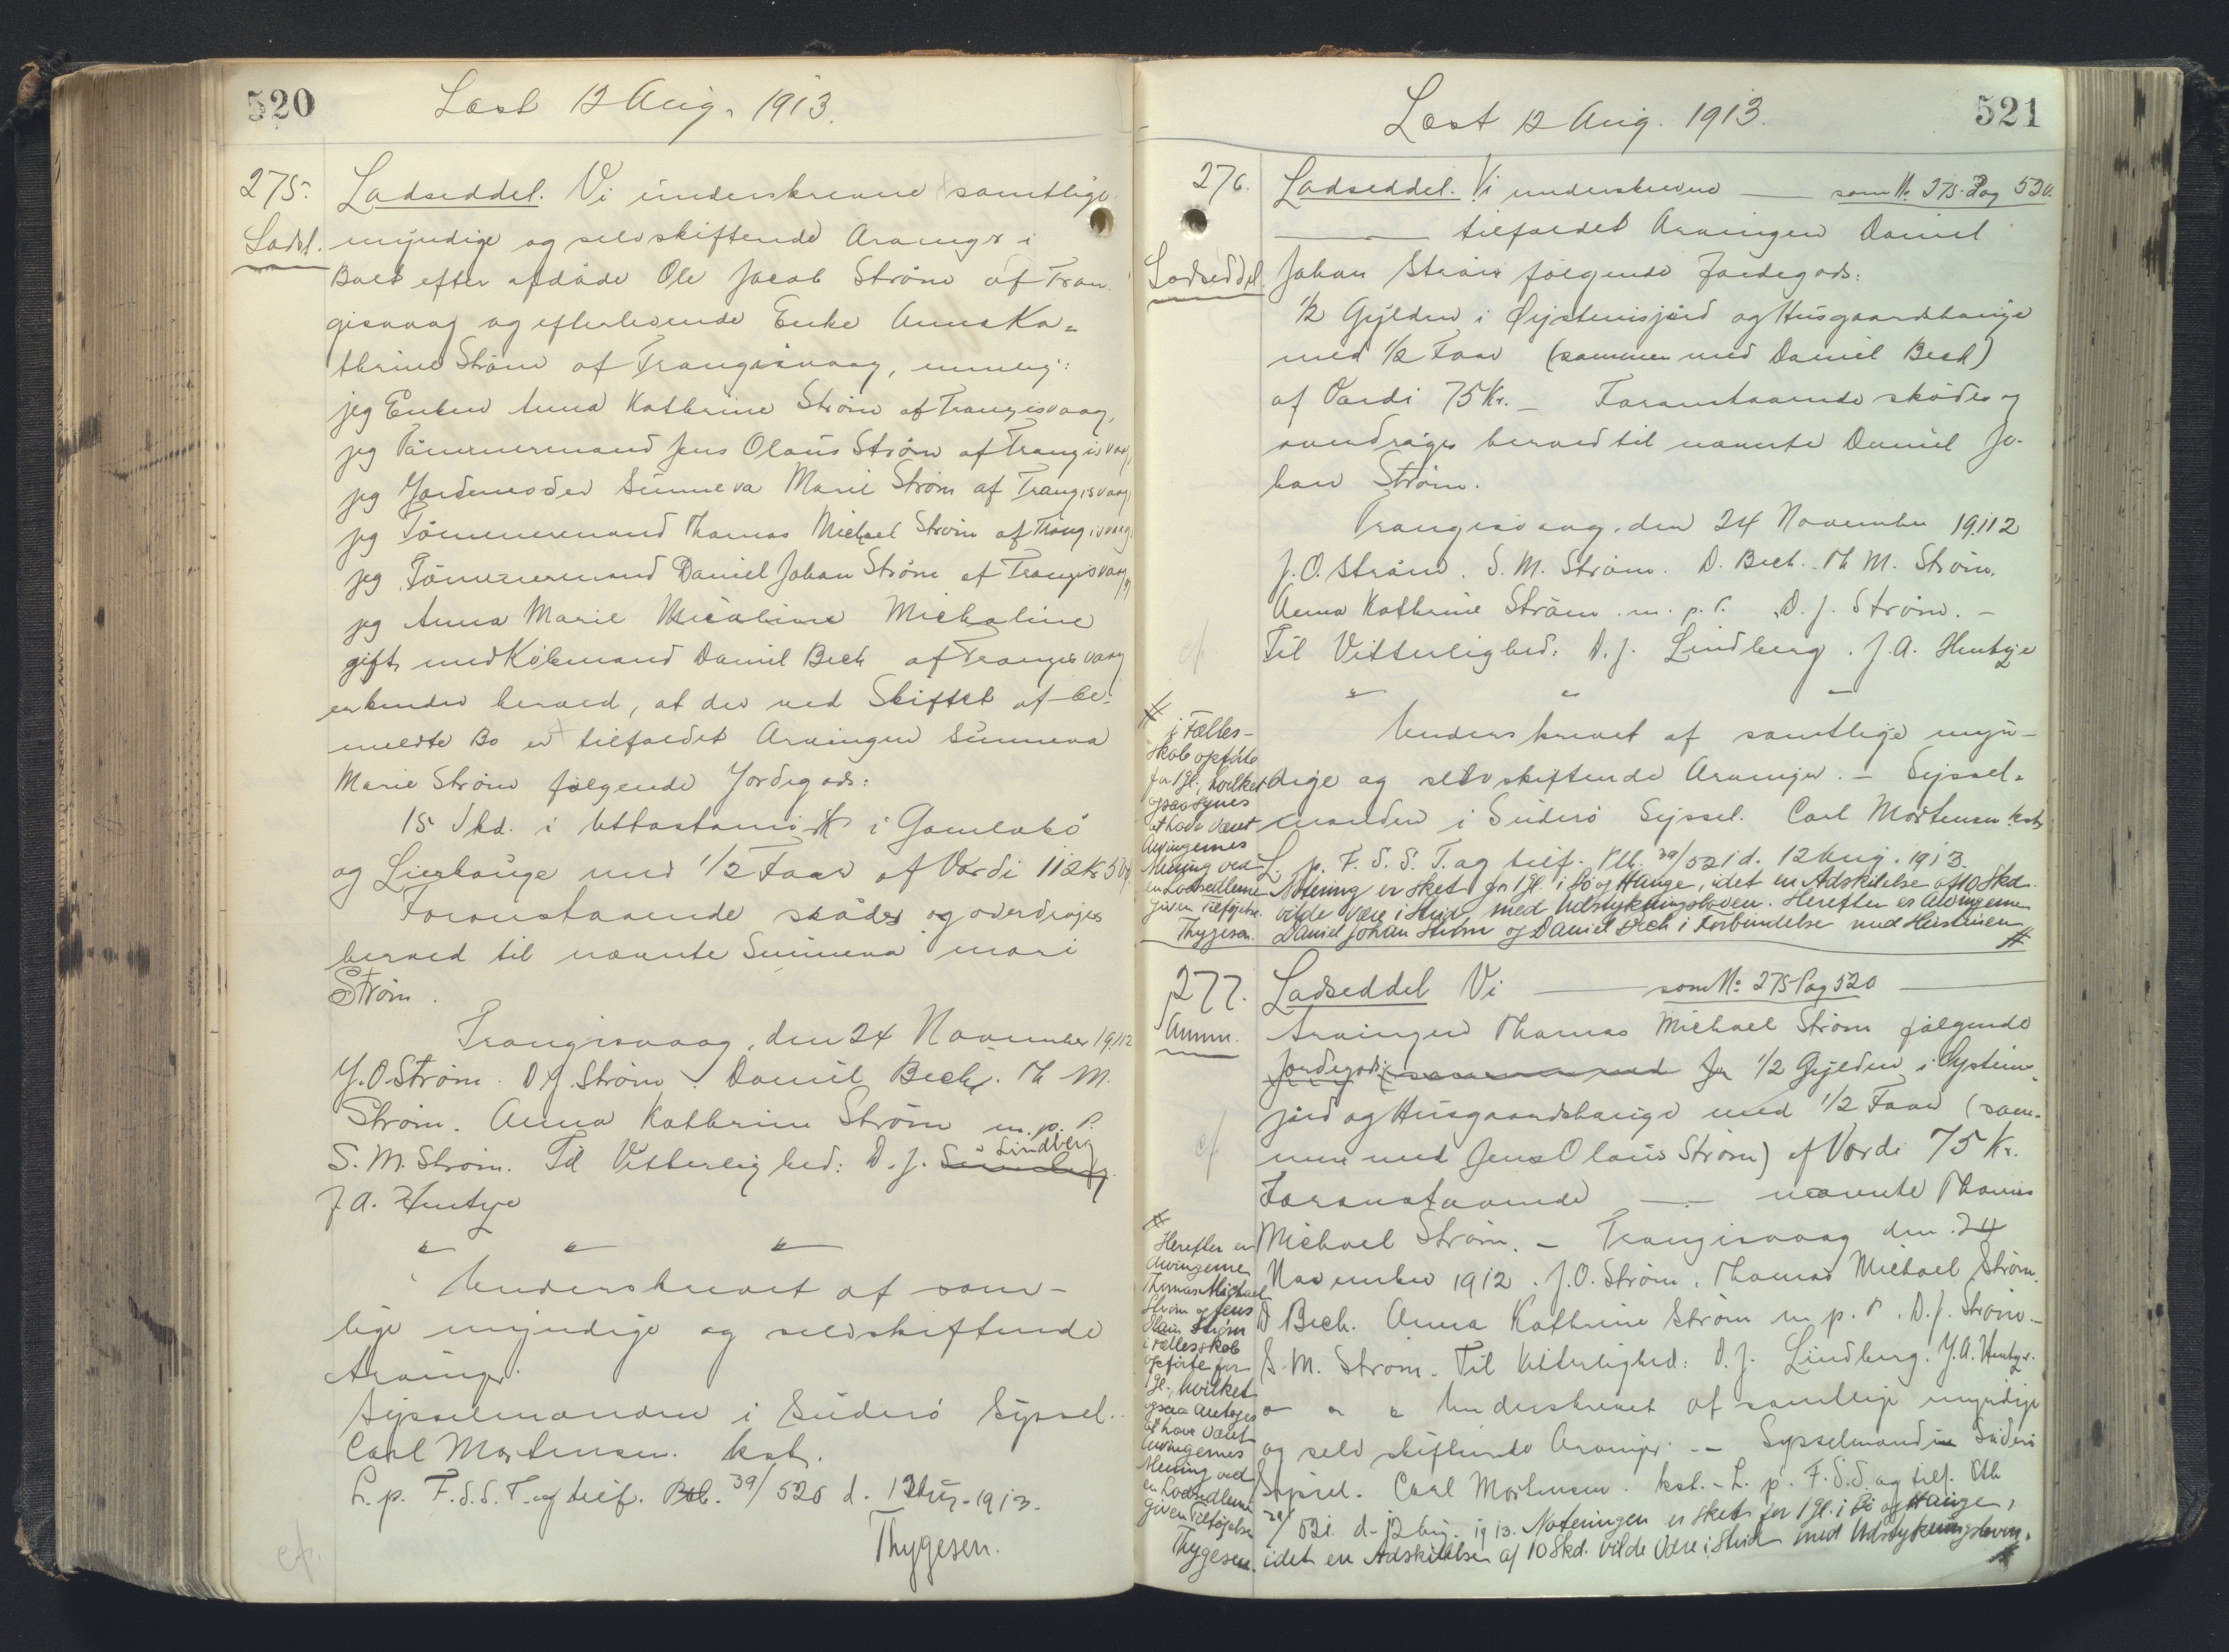 520
Læst 12 Aug. 1913.
275.
Lodsl.
Lodseddel. Vi underskrevne samtlige
myndige og selvskiftende Arvinger i
Boet efter afdøde Ole Jacob Strøm af Tran-
gisvaag og efterlevende Enke Anna Ka=
thrine Strøm af Trangisvaag, nemlig:
jeg Enken Anna Kathrine Strøm af Trangisvaag,
jeg Tømmermand Jens Olaus Strøm af Trangisvaag,
jeg Jordemoder Sunneva Marie Strøm af Trangisvaag,
jeg Tømmermand Thomas Michael Strøm af Trangisvaag,
jeg Tømmermand Daniel Johan Strøm af Trangisvaag,
jeg Anna Marie Micaline Michaline
gift med Købmand Daniel Bech af Trangisvaag
erkender herved, at der ved Skiftet af be-
meldte Bo er tilfaldet Arvingen Sunneva
Marie Strøm følgende Jordegods:
15 Skd. i i Gamlabø
og Lierhauge med 1/2 Faar af Værdi 112 Kr 50 ø.
Foranstaaende skødes og overdrages
herved til nævnte Sunneva Mari
Strøm.
Trangisvaag, den 24 November 1912
J. O Strøm. D J. Strøm. Daniel Bech. Th M.
Strøm. Anna Kathrine Strøm m. p. P.
S. M. Strøm. Til Vitterlighed: D. J. Lindberg
J A. Hentze
" " "
Underskrevet af sam-
lige myndige og selvskiftende
Arvinger.
Sysselmanden i Suderø Syssel.
Carl Mortensen. kst.
L. p. F. S. S. T. og tilf. Rtb. 39/520 d. 12 Aug. 1913.
Thygesen.
cf.
521
Læst 12 Aug. 1913.
276.
Lodseddel.
Lodseddel. Vi underskrevne — som No 275 Pag 520.
— tilfaldet Arvingen Daniel
Johan Strøm følgende Jordegods:
1/2 Gylden i Øjsteinsjørd og Husgaardshauge
med 1/2 Faar (sammen med Daniel Bech)
af Værdi 75 Kr. — Foranstaaende skødes og
overdrages herved til nævnte Daniel Jo-
han Strøm.
Trangisvaag, den 24 November 1912
J. O. Strøm. S. M. Strøm. D. Bech. Th M. Strøm.
Anna Kathrine Strøm. m. p. P. D. J. Strøm. —
cf
Til Vitterlighed: D. J. Lindberg. J. A. Hentze
" " "
Underskrevet af samtlige myn-
dige og selvskiftende Arvinger. — Syssel=
manden i Suderø Syssel. Carl Mortensen kst.
L. p. F. S. S. T. og tilf. Rtb. 39/521 d. 12 Aug. 1913.
Notering er sket for 1 gl. i Bø og Hauge, idet en Adskillelse af 10 Skd.
vilde være i Strid med Udstykningsloven. Herefter er Arvingerne
Daniel Johan Strøm og Daniel Bech i Forbindelse med Hustruen
#
#
i Fælles-
skab opførte
for 1 gl., hvilket
ogsaa synes
at have været
Arvingernes
Mening ved
en Lodsedlerne
given Tilføjelse.
Thygesen.
277.
Anmr.
Lodseddel Vi — som No 275 Pag 520 —
Arvingen Thomas Michael Strøm følgende
Jordegods: 1/2 Gylden i Øysteins-
jørd og Husgaardshauge med 1/2 Faar (sam-
men med Jens Olaus Strøm) af Værdi 75 Kr.
cf
Foranstaaende — nævnte Thomas
Michael Strøm. — Trangisvaag den 24
November 1912. J. O. Strøm. Thomas Michael Strøm.
D Bech. Anna Kathrine Strøm m. p. P. D. J. Strøm. —
S. M. Strøm. Til Vitterlighed: D. J. Lindberg. J. A. Hentze.
" " " Underskrevet af samtlige myndige
og selvskiftende Arvinger. — Sysselmanden Suderø
Syssel. Carl Mortensen. kst. — L. p. F. S. S og tilf. Rtb
39/521. d. 12 Aug. 1913. Noteringen er sket for 1 gl. i Bø og Hauge,
idet en Adskillelse af 10 Skd. vilde være i Strid med Udstykningsloven.
#
#
Herefter er
Arvingerne
Thomas Michael
Strøm og Jens
Olaus Strøm
i Fællesskab
opførte for
1 gl., hvilket
ogsaa antages
at have været
Arvingernes
Mening ved
en Lodsedlerne
given Tilføjelse
Thygesen.